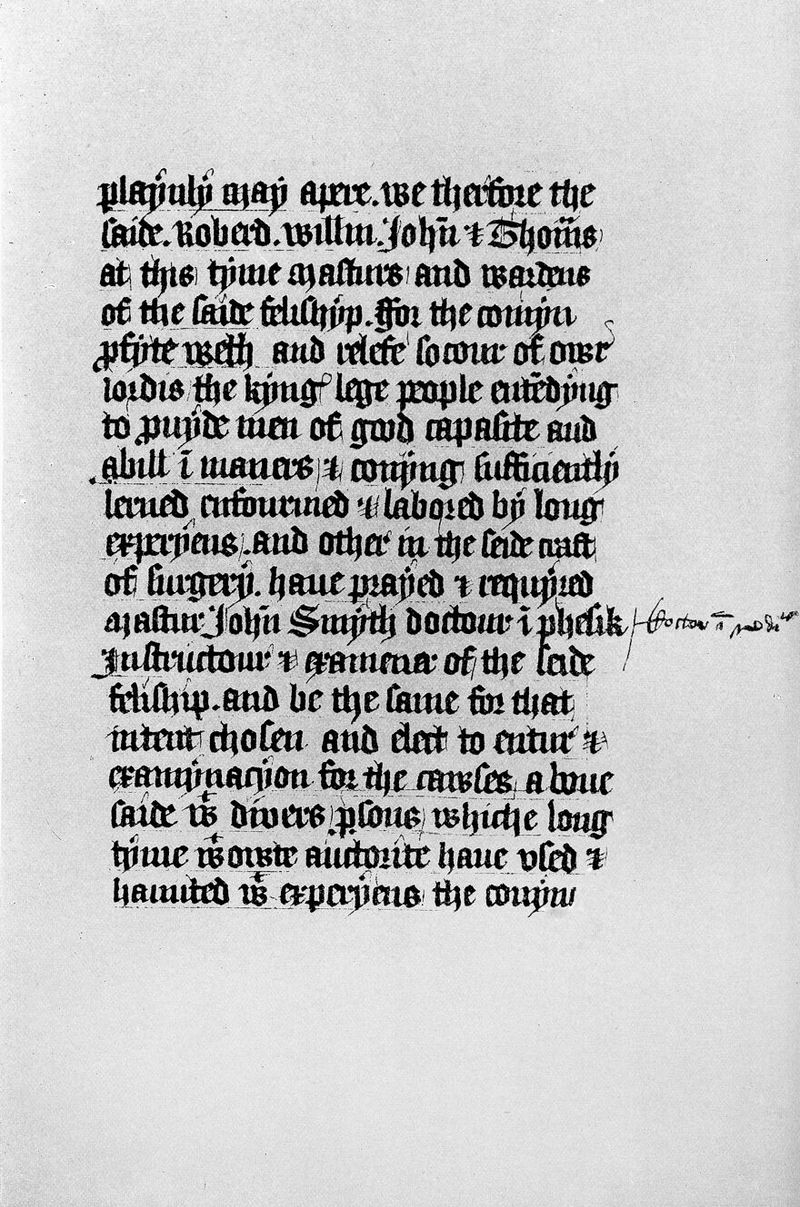 playnly may apere. we therfore the
saide. Roberd. willm. John̄ ⁊ Thom̄s
at this tyme masturs and wardens
of the saide felishyp. ffor the comyn
ꝓfyte welth and relefe socour of owr
lordis the kyng lege people entēdyng
to ꝓuyde men of good capasite and
abill ī maners ⁊ conyng sufficiently
lerned enfourmed ⁊ labored by long
experyens. and other in the seide craft
of surgery. haue prayed ⁊ requyred
mastur John̄ Smyth doctour ī phesik doctor ī
Instructour ⁊ examener of the seide
feliship. and be the same for that
intent chosen and elect to entur ⁊
examynacyon for the cawses a boue
saide wͭ divers ꝑsons whiche long
tyme wͭ owte auctorite haue vsed ⁊
haunted wͭ experyens the comyn